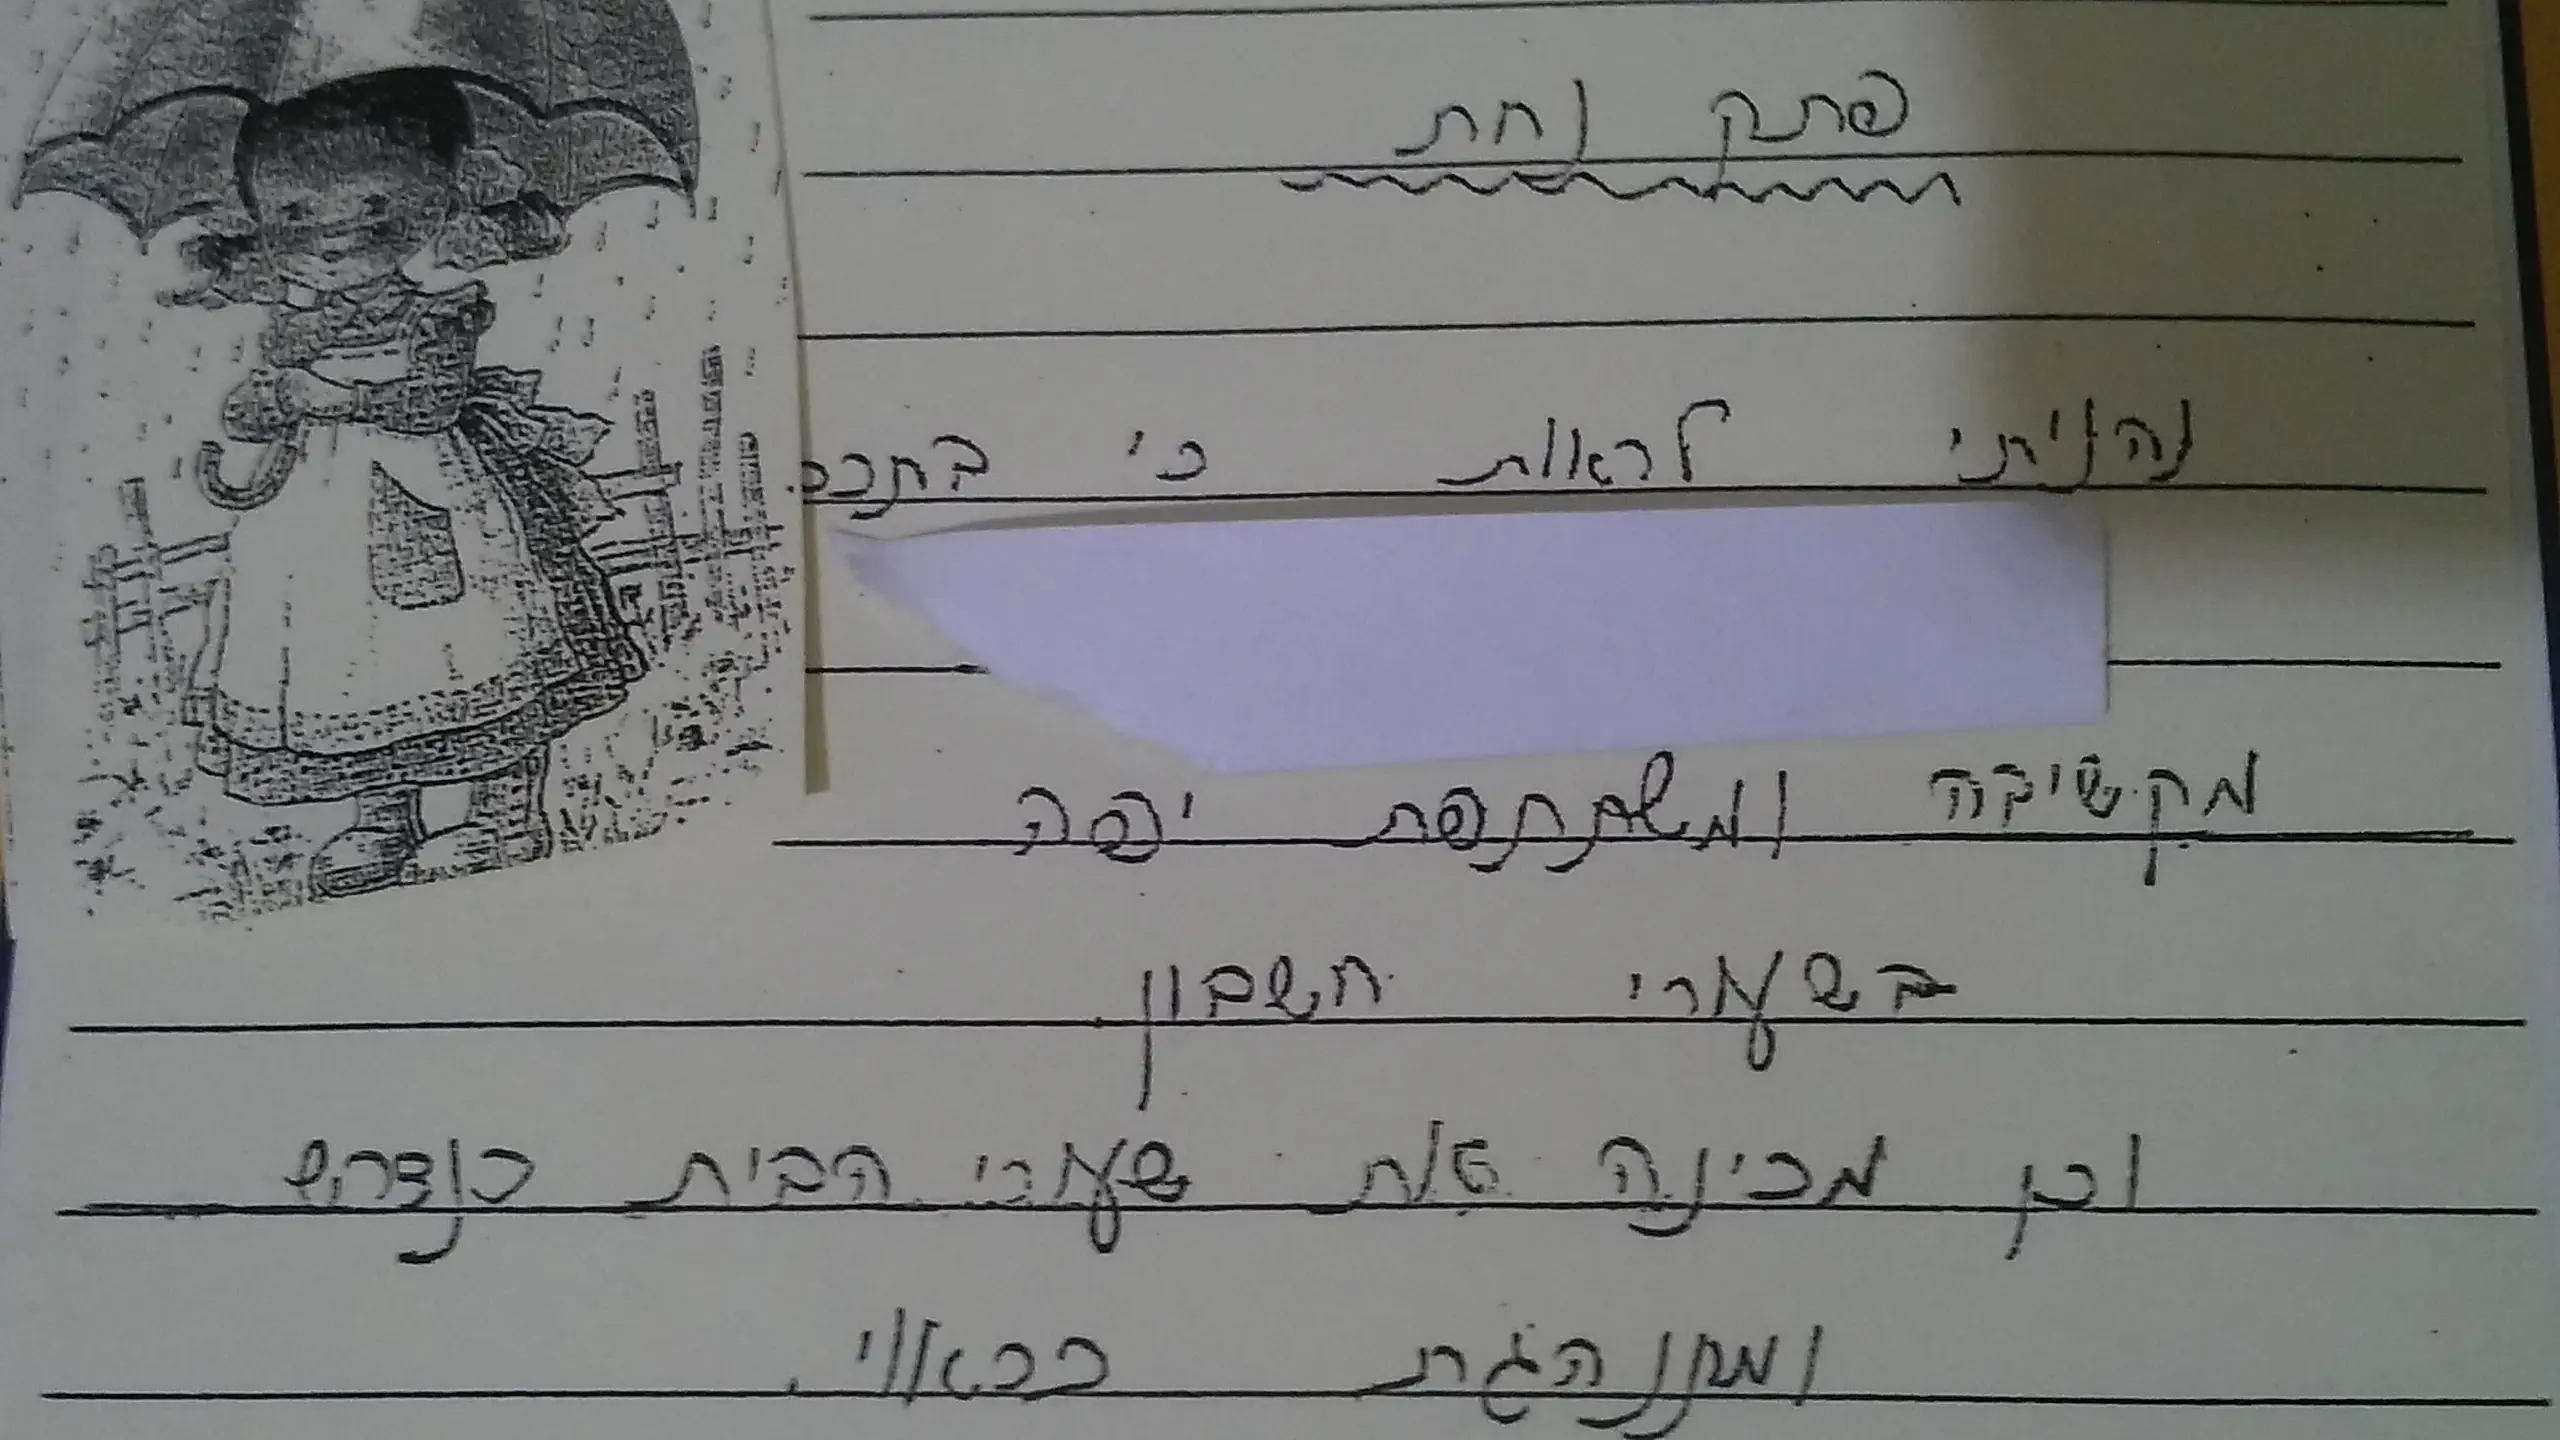 פתק נחת
נהניתי לראות כי בתככ
מקשיבה ומשתתפת יפה
בשעורי חשבון
וכן מכינה את שעורי הבית כנדרש
ומתנהגת כראוי.